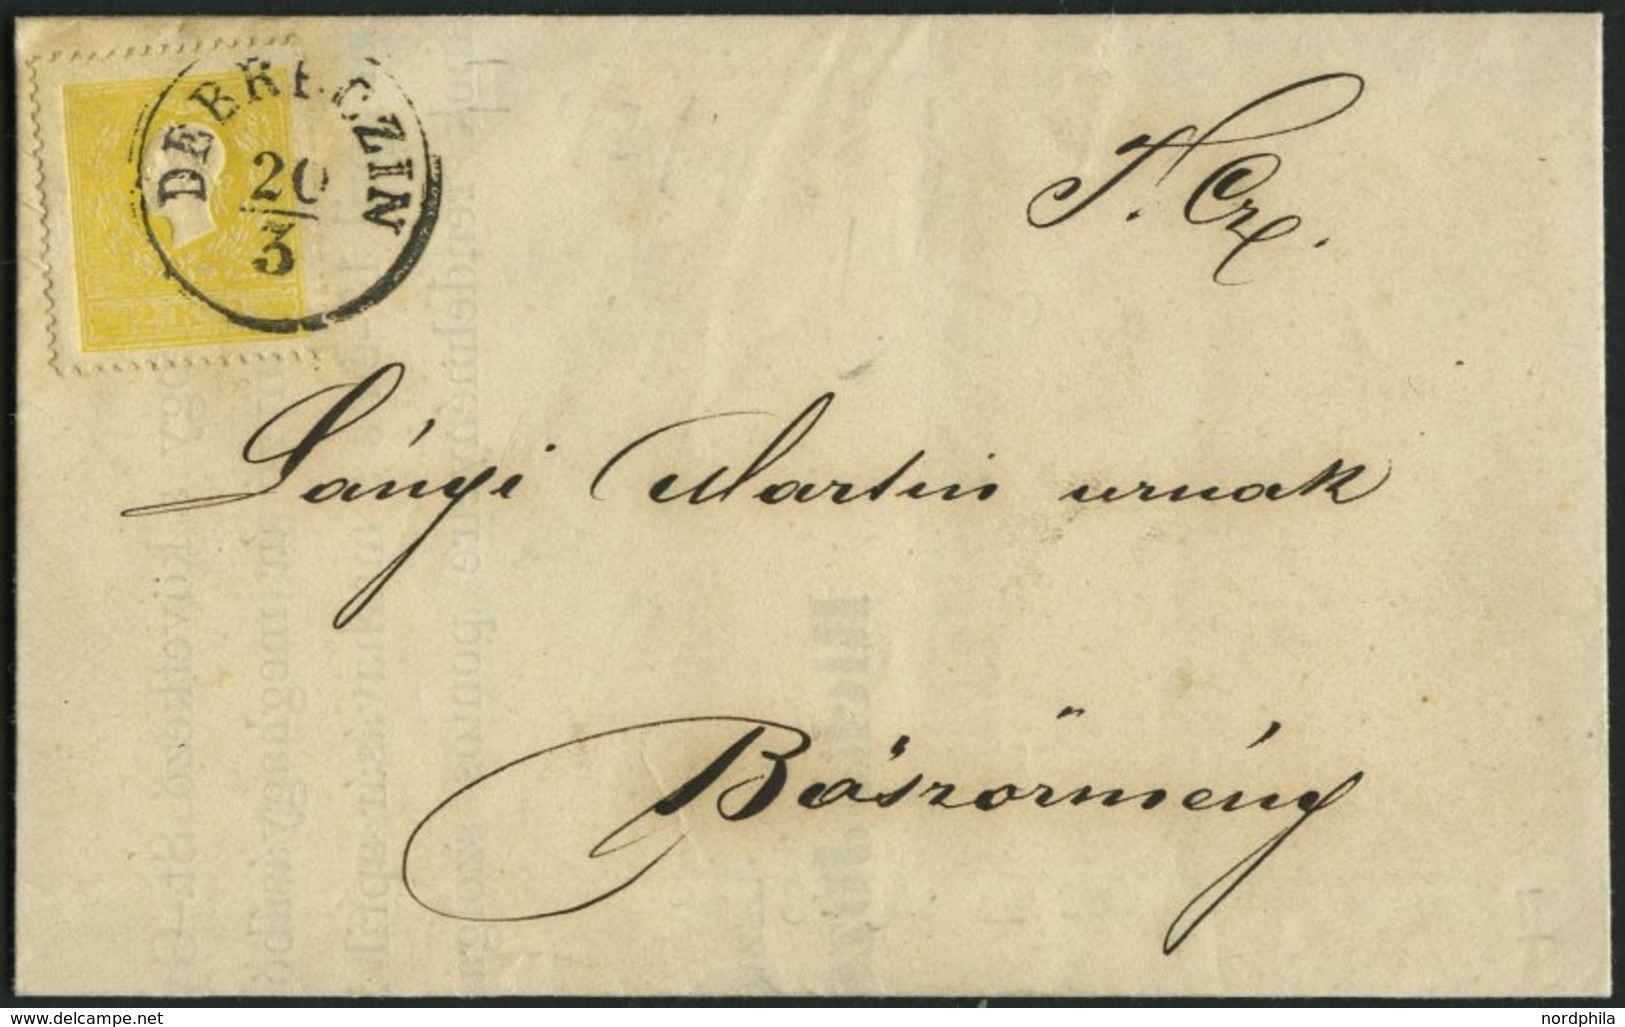 DEBRECZIN
20
3
T. Cz.
Lányi Martin urnak
Böszörmény
www.delcampe.net
nordphila